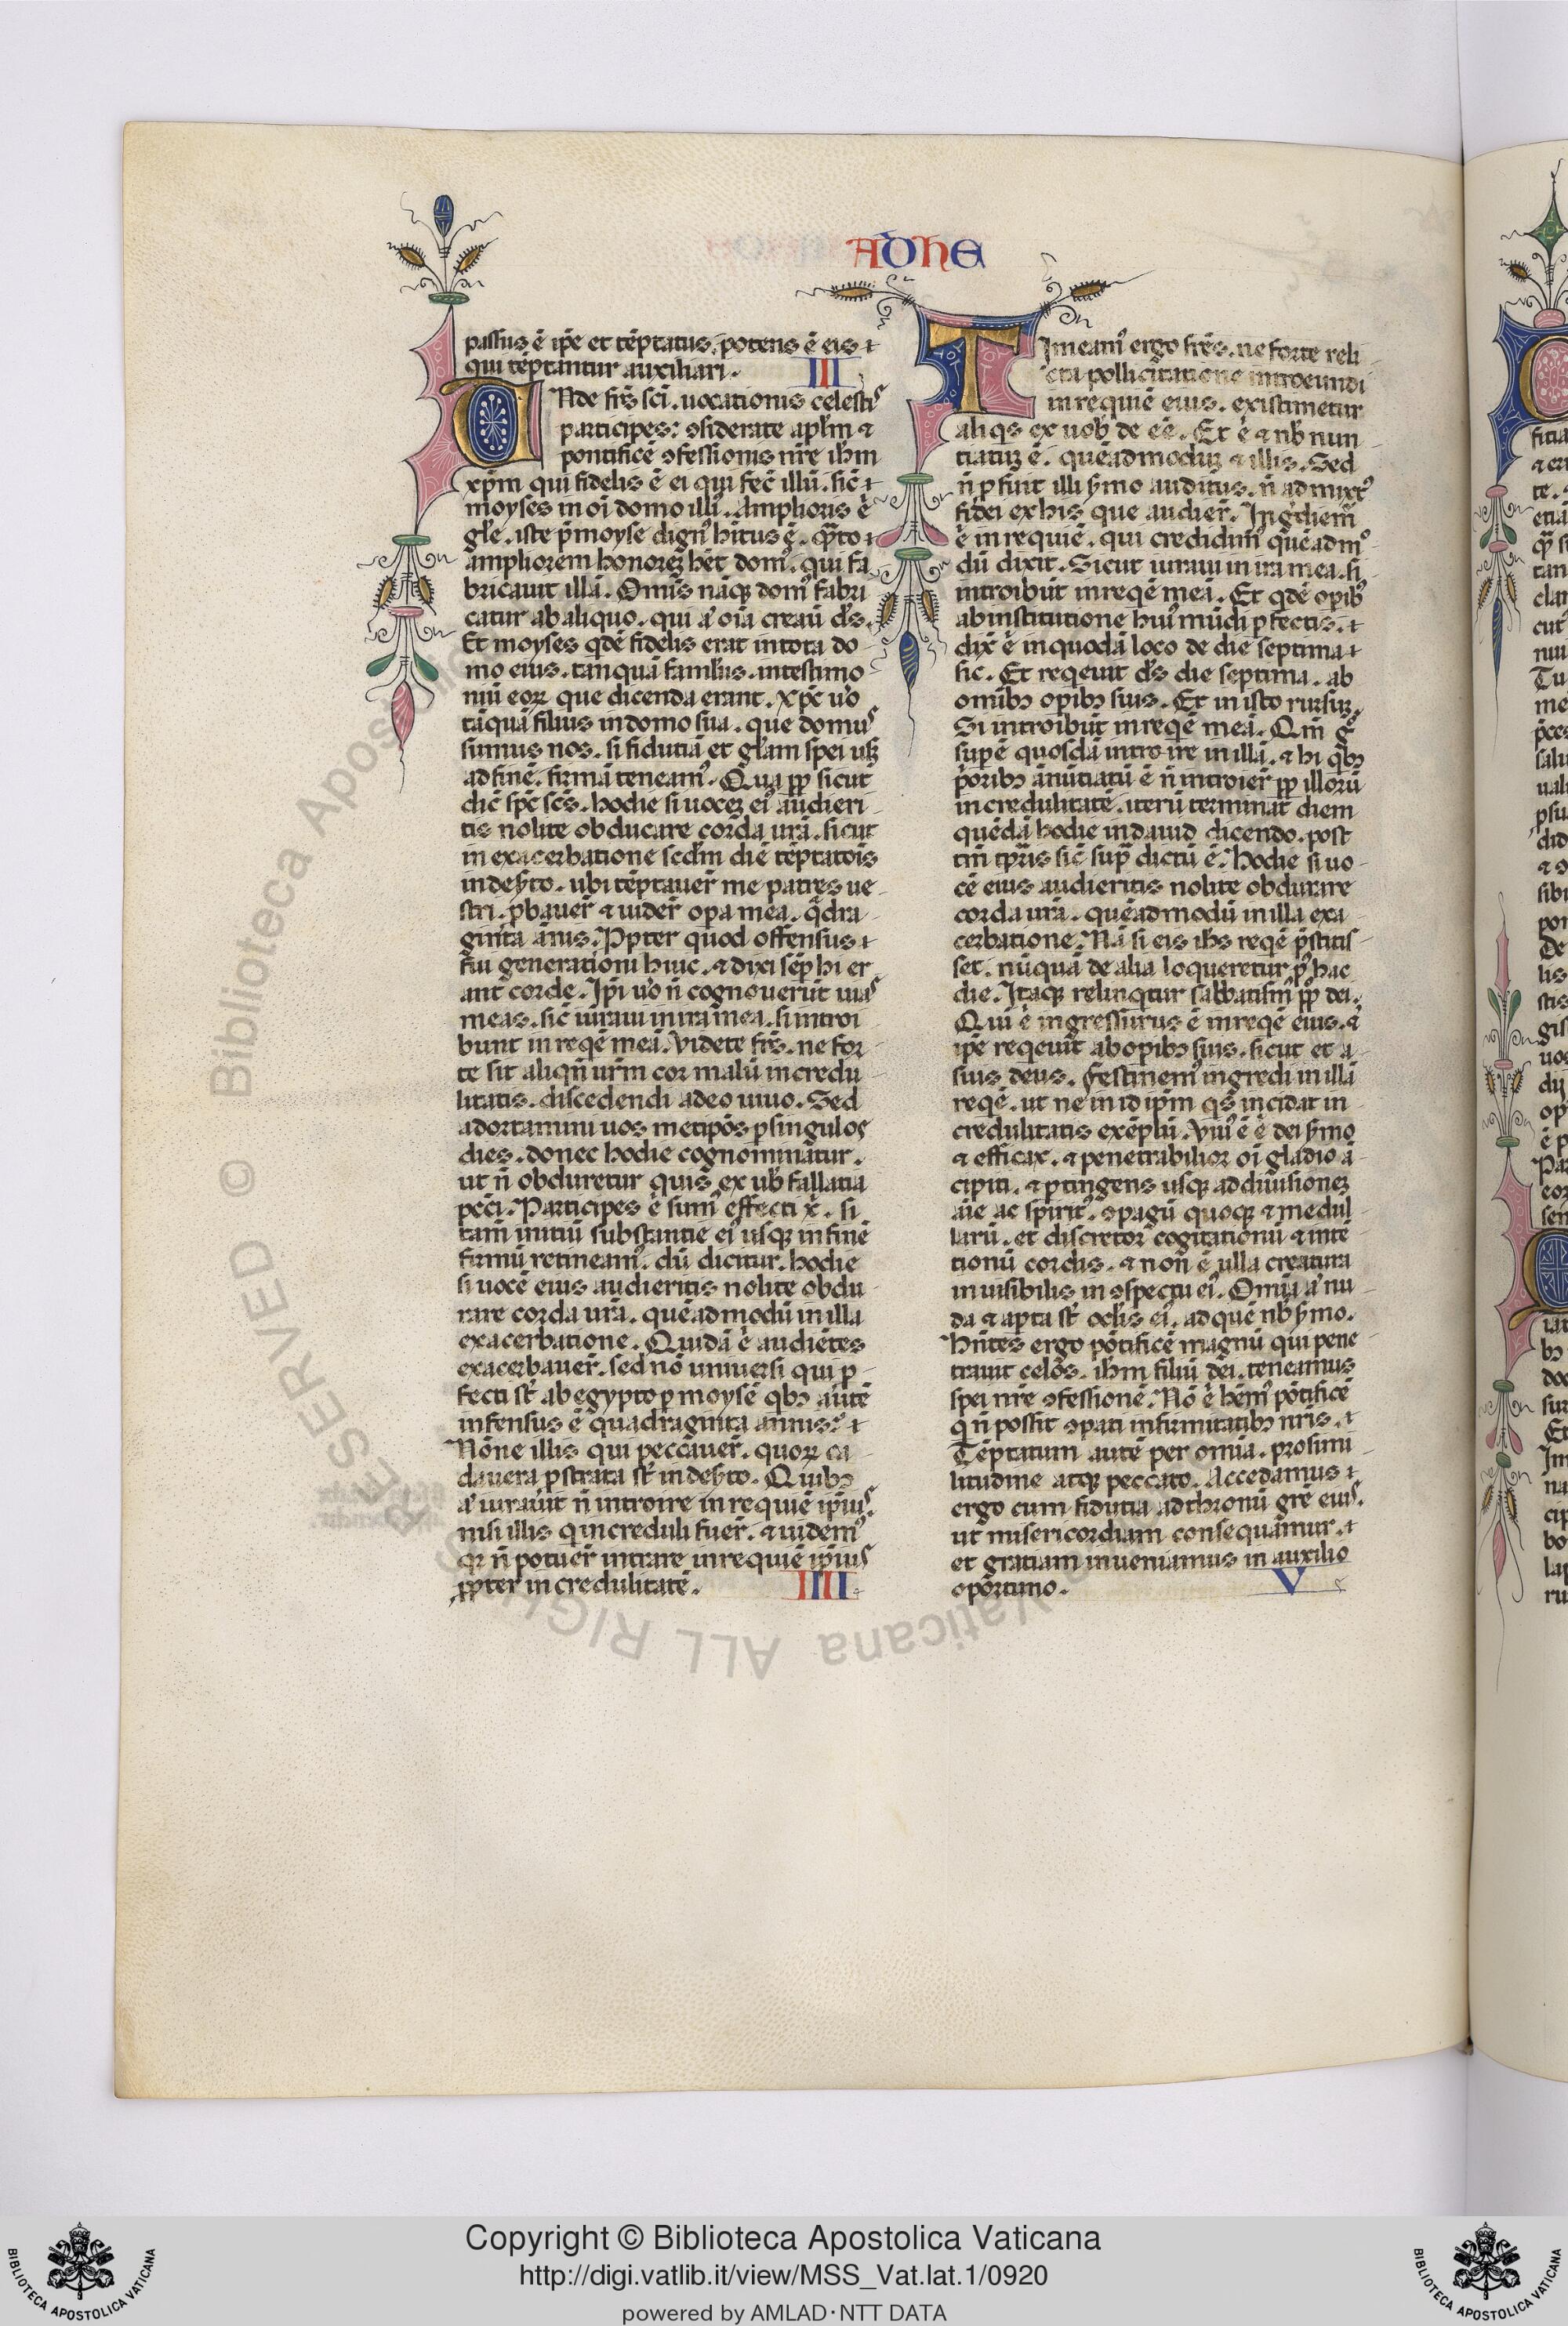 ADHE
passus ē ip̄e et tēptatus. potens ē eis ⁊
qui tēptantur auxiliari. III
UNde fr̄s sc̄i. uocationis celestiˢ
participes: ꝯsiderate apl̄m ⁊
pontificē ꝯfessionis nr̄e ih̄m
xp̄m qui fidelis ē ei qui fec̄ illū. sic̄ ⁊
moyses in oī domo illiꝰ. Amplioris .n.
gl̄e. iste p̄ moyse dignꝰ hitus ē. q̄to ⁊
ampliorem honorez h̄et domꝰ. qui fa
bricauit illā. Omīs nāq; domꝰ fabri
catur ab aliquo. qui aͭ oīa creauit d̄s.
Et moyses qdē fidelis erat in tota do
mo eius. tanquā famulus. in testimo
niū eoꝝ que dicenda erant. xp̄c u̔o
tāquā filius in domo sua. que domuˢ
sumus nos. si fidutiā et gl̄am spei usꝫ
ad finē. firmā teneamꝰ. Qua ꝓp̄ sicut
dic̄ sp̄c sc̄s. hodie si uocez eiꝰ audieri
tis nolite obducare corda ur̄a. sicut
in exacerbatione scd̄m diē tēptatōis
in deẜto. ubi tēptauer̄ me patres ue
stri. ꝓbauer̄ ⁊ uider̄ opa mea. q̄dra
ginta ānis. Ꝓpter quod offensus ⁊
fui generationi huic. ⁊ dixi sēp hi er
ant corde. Ip̄i u̔o n̄ cognouerūt uiaˢ
meas. sic̄ iuraui in ira mea. si introi
bunt in reqē meā. Videte fr̄s. ne for
te sit aliqn̄ ur̄m cor malū incredu
litatis. discedendi a deo uiuo. Sed
adortamini uos metipōs ꝑ singulos
dies. donec hodie cognominatur.
ut n̄ obduretur quis ex ub̄ fallatia
pecī. Participes .n. sumꝰ effecti x̄. si
tam̄ initiū substantie eiꝰ usq; in finē
firmū retineamꝰ. dū dicitur. hodie
si uocē eius audieritis nolite obdu
rare corda ur̄a. quēadmodū in illa
exacerbatione. Quidā .n. audiētes
exacerbauer̄. sed nō uniuersi qui ꝓ
fecti st̄ ab egypto ꝑ moysē. qbꝫ autē
infensus ē quadraginta annis? ⁊
Nōne illis qui peccauer̄. quoꝝ ca
dauera ꝓstrata st̄ in deẜto. Quibꝫ
aͭ iurauit n̄ introire in requiē ip̄iuˢ.
nisi illis q increduli fuer̄. ⁊ uidemꝰ
qꝛ n̄ potuer̄ intrare in requiē ip̄iuˢ
ꝓpter incredulitatē. IIII
TImeamꝰ ergo fr̄s. ne forte reli
cta pollicitatione introeundi
in requiē eius. existimetur
aliqs ex uob̄ de eē. Et .n. ⁊ nb̄ nun
tiatuz ē. quēadmoduz ⁊ illis. Sed
n̄ ꝓfuit illi ẜmo auditus. n̄ admixtꝰ
fidei ex his que audier̄. Ingdiem̄
.n. in requiē. qui credidimꝰ quēadmꝰ
dū dixit. Sicut iuraui in ira mea. si
introibūt in reqē meā. Et qdē opibꝰ
ab institutione huiꝰ mūdi ꝑfectis. ⁊
dix̄ .n. in quodā loco de die septima ⁊
sic. Et reqeuit d̄s die septima. ab
omībꝫ opibꝫ suis. Et in isto rursuꝫ.
Si introibūt in reqē meā. Qm̄ gͦ
supē quosdā introire in illā. ⁊ hi qbꝫ
p̄oribꝫ ānūtiatū ē n̄ introier̄ ꝓp̄ illorū
incredulitatē. iterū terminat diem
quēdā hodie in dauid dicendo. post
tm̄ tp̄ris sic̄ sup̄ dictū ē. Hodie si uo
cē eius audieritis nolite obdurare
corda ur̄a. quēadmodū in illa exa
cerbatione. Nā si eis ih̄s reqē p̄stitis
set. nūquā de alia loqueretur pꝰ hac
die. Itaq; relinqtur sabbatism̄ꝰ pp̄ dei.
Qui .n. ingressurus ē in reqē eius. ⁊
ip̄e reqeuit ab opibꝫ suis. sicut et a
suis deus. Festinemꝰ ingredi in illā
reqē. ut ne in id ip̄m qs incidat in
credulitatis exēplū. Viuꝰ ē .n. dei ẜmo
⁊ efficax. ⁊ penetrabilior oī gladio ā
cipiti. ⁊ ꝑtingens usq; ad diuisionez
aīe ac spiritꝰ. ꝯpagū quoq; ⁊ medul
larū. et discretor cogitationū ⁊ intē
tionū cordis. ⁊ non ē ulla creatura
inuisibilis in ꝯspectu eiꝰ. Omīa aͭ nu
da ⁊ apta st̄ ocl̄is eiꝰ. ad quē nb̄ ẜmo.
Hn̄tes ergo pōtificē magnū qui pene
trauit celos. ih̄m filiū dei. teneamus
spei nr̄e ꝯfessionē. Nō .n. hēmꝰ pōtificē
q n̄ possit ꝯpati infirmitatibꝫ nr̄is. ⁊
Tēptatum autē per omia. pro simi
litudine atq; peccato. Accedamus ⁊
ergo cum fidutia ad thronū gr̄e euiˢ.
ut misericordiam consequamur. ⁊
et gratiam inueniamus in auxilio
oportuno. V
Copyright © Biblioteca Apostolica Vaticana
http://digi.vatlib.it/view/MSS_Vat.lat.1/0920
powered by AMLAD·NTT DATA
BIBLIOTECA APOSTOLICA VATICANA
BIBLIOTECA APOSTOLICA VATICANA
© Biblioteca Apostolica Vaticana ALL RIGHTS RESERVED